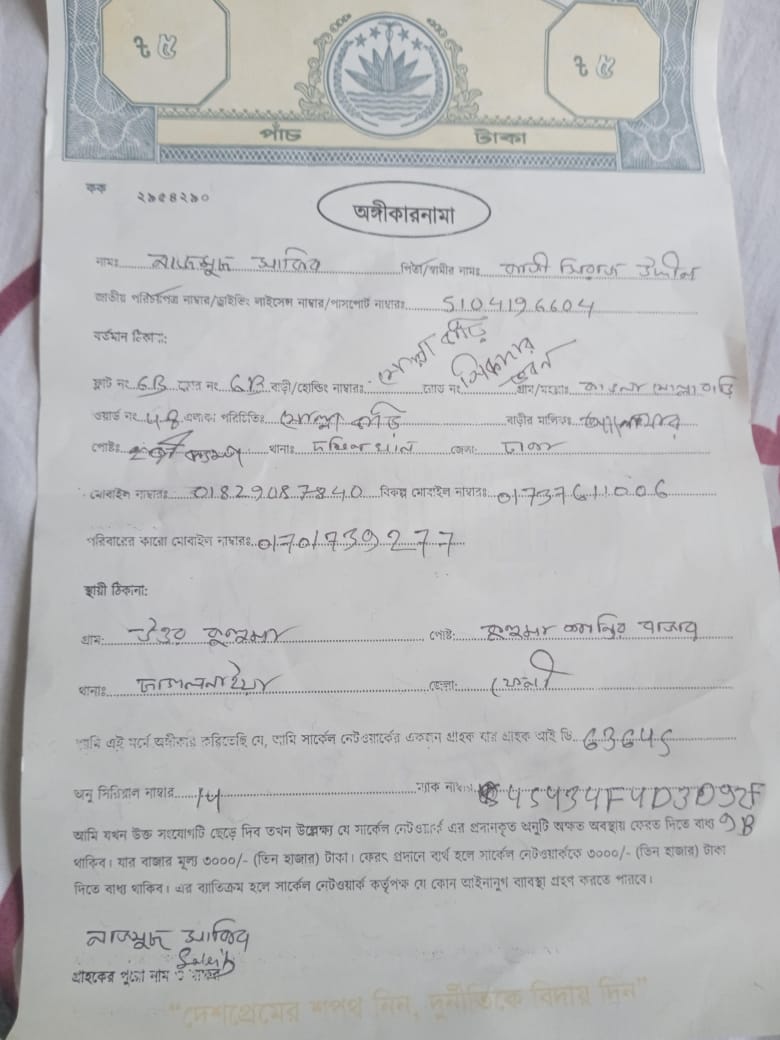 ৳ ৫ ৳ ৫
পাঁচ টাকা
কক ২৯৫৪২৯০
অঙ্গীকারনামা
নামঃ নাজমুছ সাকিব পিতা/স্বামীর নামঃ কাজী মিরাজ উদ্দীন
জাতীয় পরিচয়পত্র নাম্বার/ড্রাইভিং লাইসেন্স নাম্বার/পাসপোর্ট নাম্বারঃ 5104196604
বর্তমান ঠিকানা:
মোল্লা বাড়ি সিকদার ভবন
ফ্লাট নং 6B রুম নং 6B বাড়ী/হোল্ডিং নাম্বারঃ রোড নং গ্রাম/মহল্লাঃ কাওলা মোল্লা বাড়ি
ওয়ার্ড নং এলাকা পরিচিতিঃ মোল্লা বাড়ি বাড়ীর মালিকঃ
পোষ্টঃ থানাঃ দক্ষিনখান জেলা: ঢাকা
মোবাইল নাম্বারঃ 01829087840 বিকল্প মোবাইল নাম্বারঃ 01737611006
পরিবারের কারো মোবাইল নাম্বারঃ 01701739277
স্থায়ী ঠিকানা:
গ্রাম: উত্তর কুহুমা পোষ্ট: কুহুমা বাজার
থানাঃ ছাগলনাইয়া জেলা: ফেনী
আমি এই মর্মে অঙ্গীকার করিতেছি যে, আমি সার্কেল নেটওয়ার্কের একজন গ্রাহক যার গ্রাহক আই ডি 63645
অনু সিরিয়াল নাম্বার 14 ম্যাক নাম্বার 45434F4D3D92F
9B
আমি যখন উক্ত সংযোগটি ছেড়ে দিব তখন উল্লেক্ষ্য যে সার্কেল নেটওয়ার্ক এর প্রদানকৃত অনুটি অক্ষত অবস্থায় ফেরত দিতে বাধ্য
থাকিব। যার বাজার মূল্য ৩০০০/- (তিন হাজার) টাকা। ফেরৎ প্রদানে ব্যর্থ হলে সার্কেল নেটওয়ার্ককে ৩০০০/- (তিন হাজার) টাকা
দিতে বাধ্য থাকিব। এর ব্যতিক্রম হলে সার্কেল নেটওয়ার্ক কর্তৃপক্ষ যে কোন আইনানুগ ব্যবস্থা গ্রহণ করতে পারবে।
নাজমুছ সাকিব
গ্রাহকের পুরো নাম ও স্বাক্ষর
"দেশপ্রেমের শপথ নিন, দুর্নীতিকে বিদায় দিন"